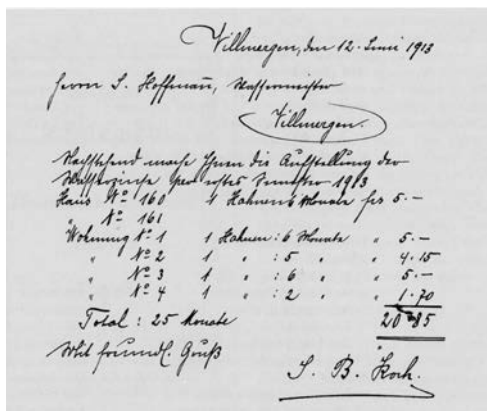 Villmergen, den 12. Juni 1913
Herrn S. Hoffmann, Wassermeister
Villmergen.
Nachstehend mache Ihnen die Aufstellung der
Wasserzinse per erstes Semester 1913
Haus Nº 160 1 Hahnen 6 Monate frs 5.—
" Nº 161
Wohnung Nº 1 1 Hahnen : 6 Monate " 5.—
" Nº 2 1 " : 5 " " 4.15
" Nº 3 1 " : 6 " " 5.—
" Nº 4 1 " : 2 " " 1.70
Total : 25 Monate 20 85
Mit freundl. Gruß
S. B. Koch.